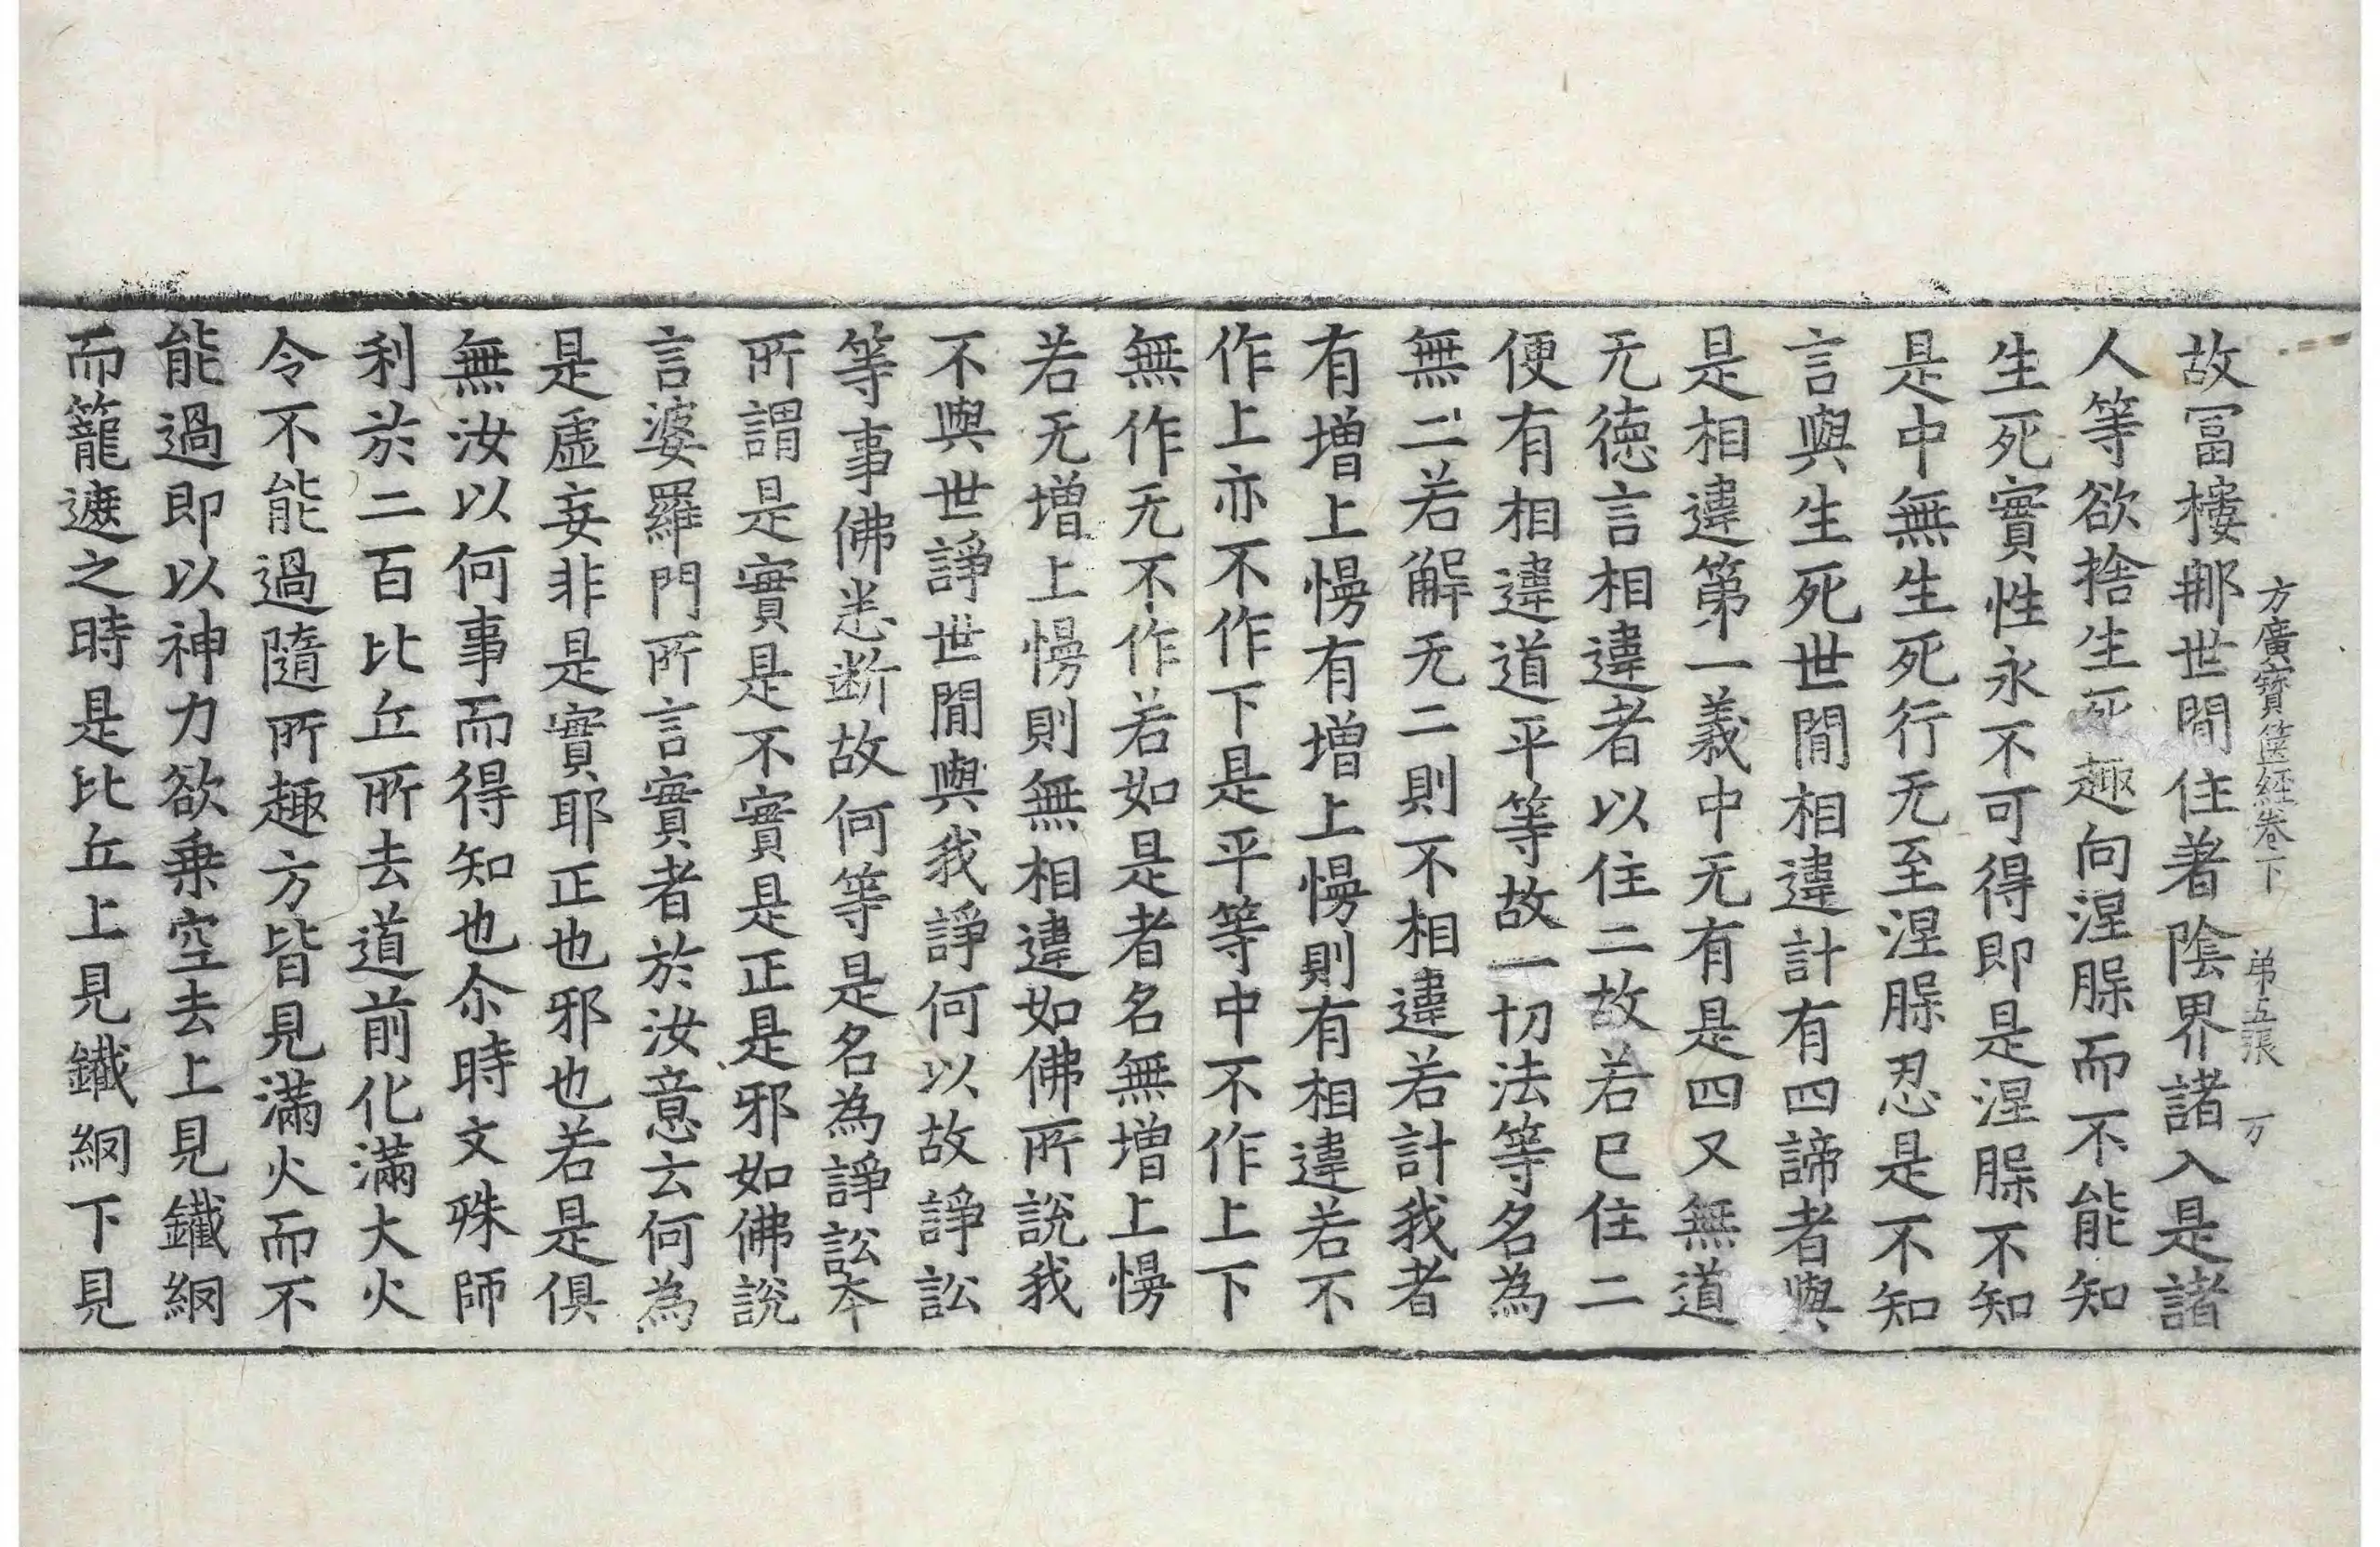 方廣寶篋經卷下 弟五張 万
故冨樓那世間住著陰界諸入是諸
人等欲捨生死趣向涅槃而不能知
生死實性永不可得即是涅槃不知
是中無生死行无至涅槃忍是不知
言與生死世間相違計有四諦者與
是相違第一義中无有是四又無道
无德言相違者以住二故若已住二
便有相違道平等故一切法等名為
無二若解无二則不相違若計我者
有增上慢有增上慢則有相違若不
作上亦不作下是平等中不作上下
無作无不作若如是者名無增上慢
若无增上慢則無相違如佛所說我
不與世諍世間與我諍何以故諍訟
等事佛悉断故何等是名為諍訟本
所謂是實是不實是正是邪如佛說
言婆羅門所言實者於汝意云何為
是虛妄非是實耶正也邪也若是俱
無汝以何事而得知也尒時文殊師
利於二百比丘所去道前化滿大火
令不能過隨所趣方皆見滿火而不
能過即以神力欲乗空去上見鐵網
而籠遮之時是比丘上見鐵網下見